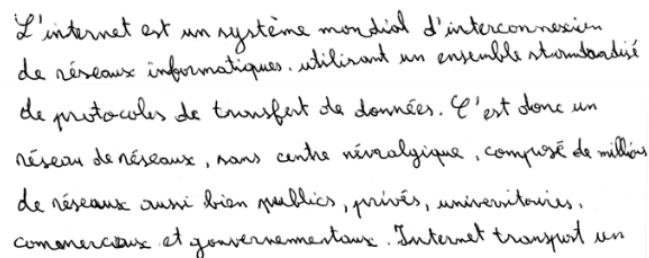 L'internet est un système mondial d'interconnexion
de réseaux informatiques. utilisant un ensemble standardisé
de protocoles de transfert de données. C'est donc un
réseau de réseaux, sans centre névralgique, composé de millions
de réseaux aussi bien publics, privés, universitaires,
commerciaux et gouvernementaux. Internet transport un